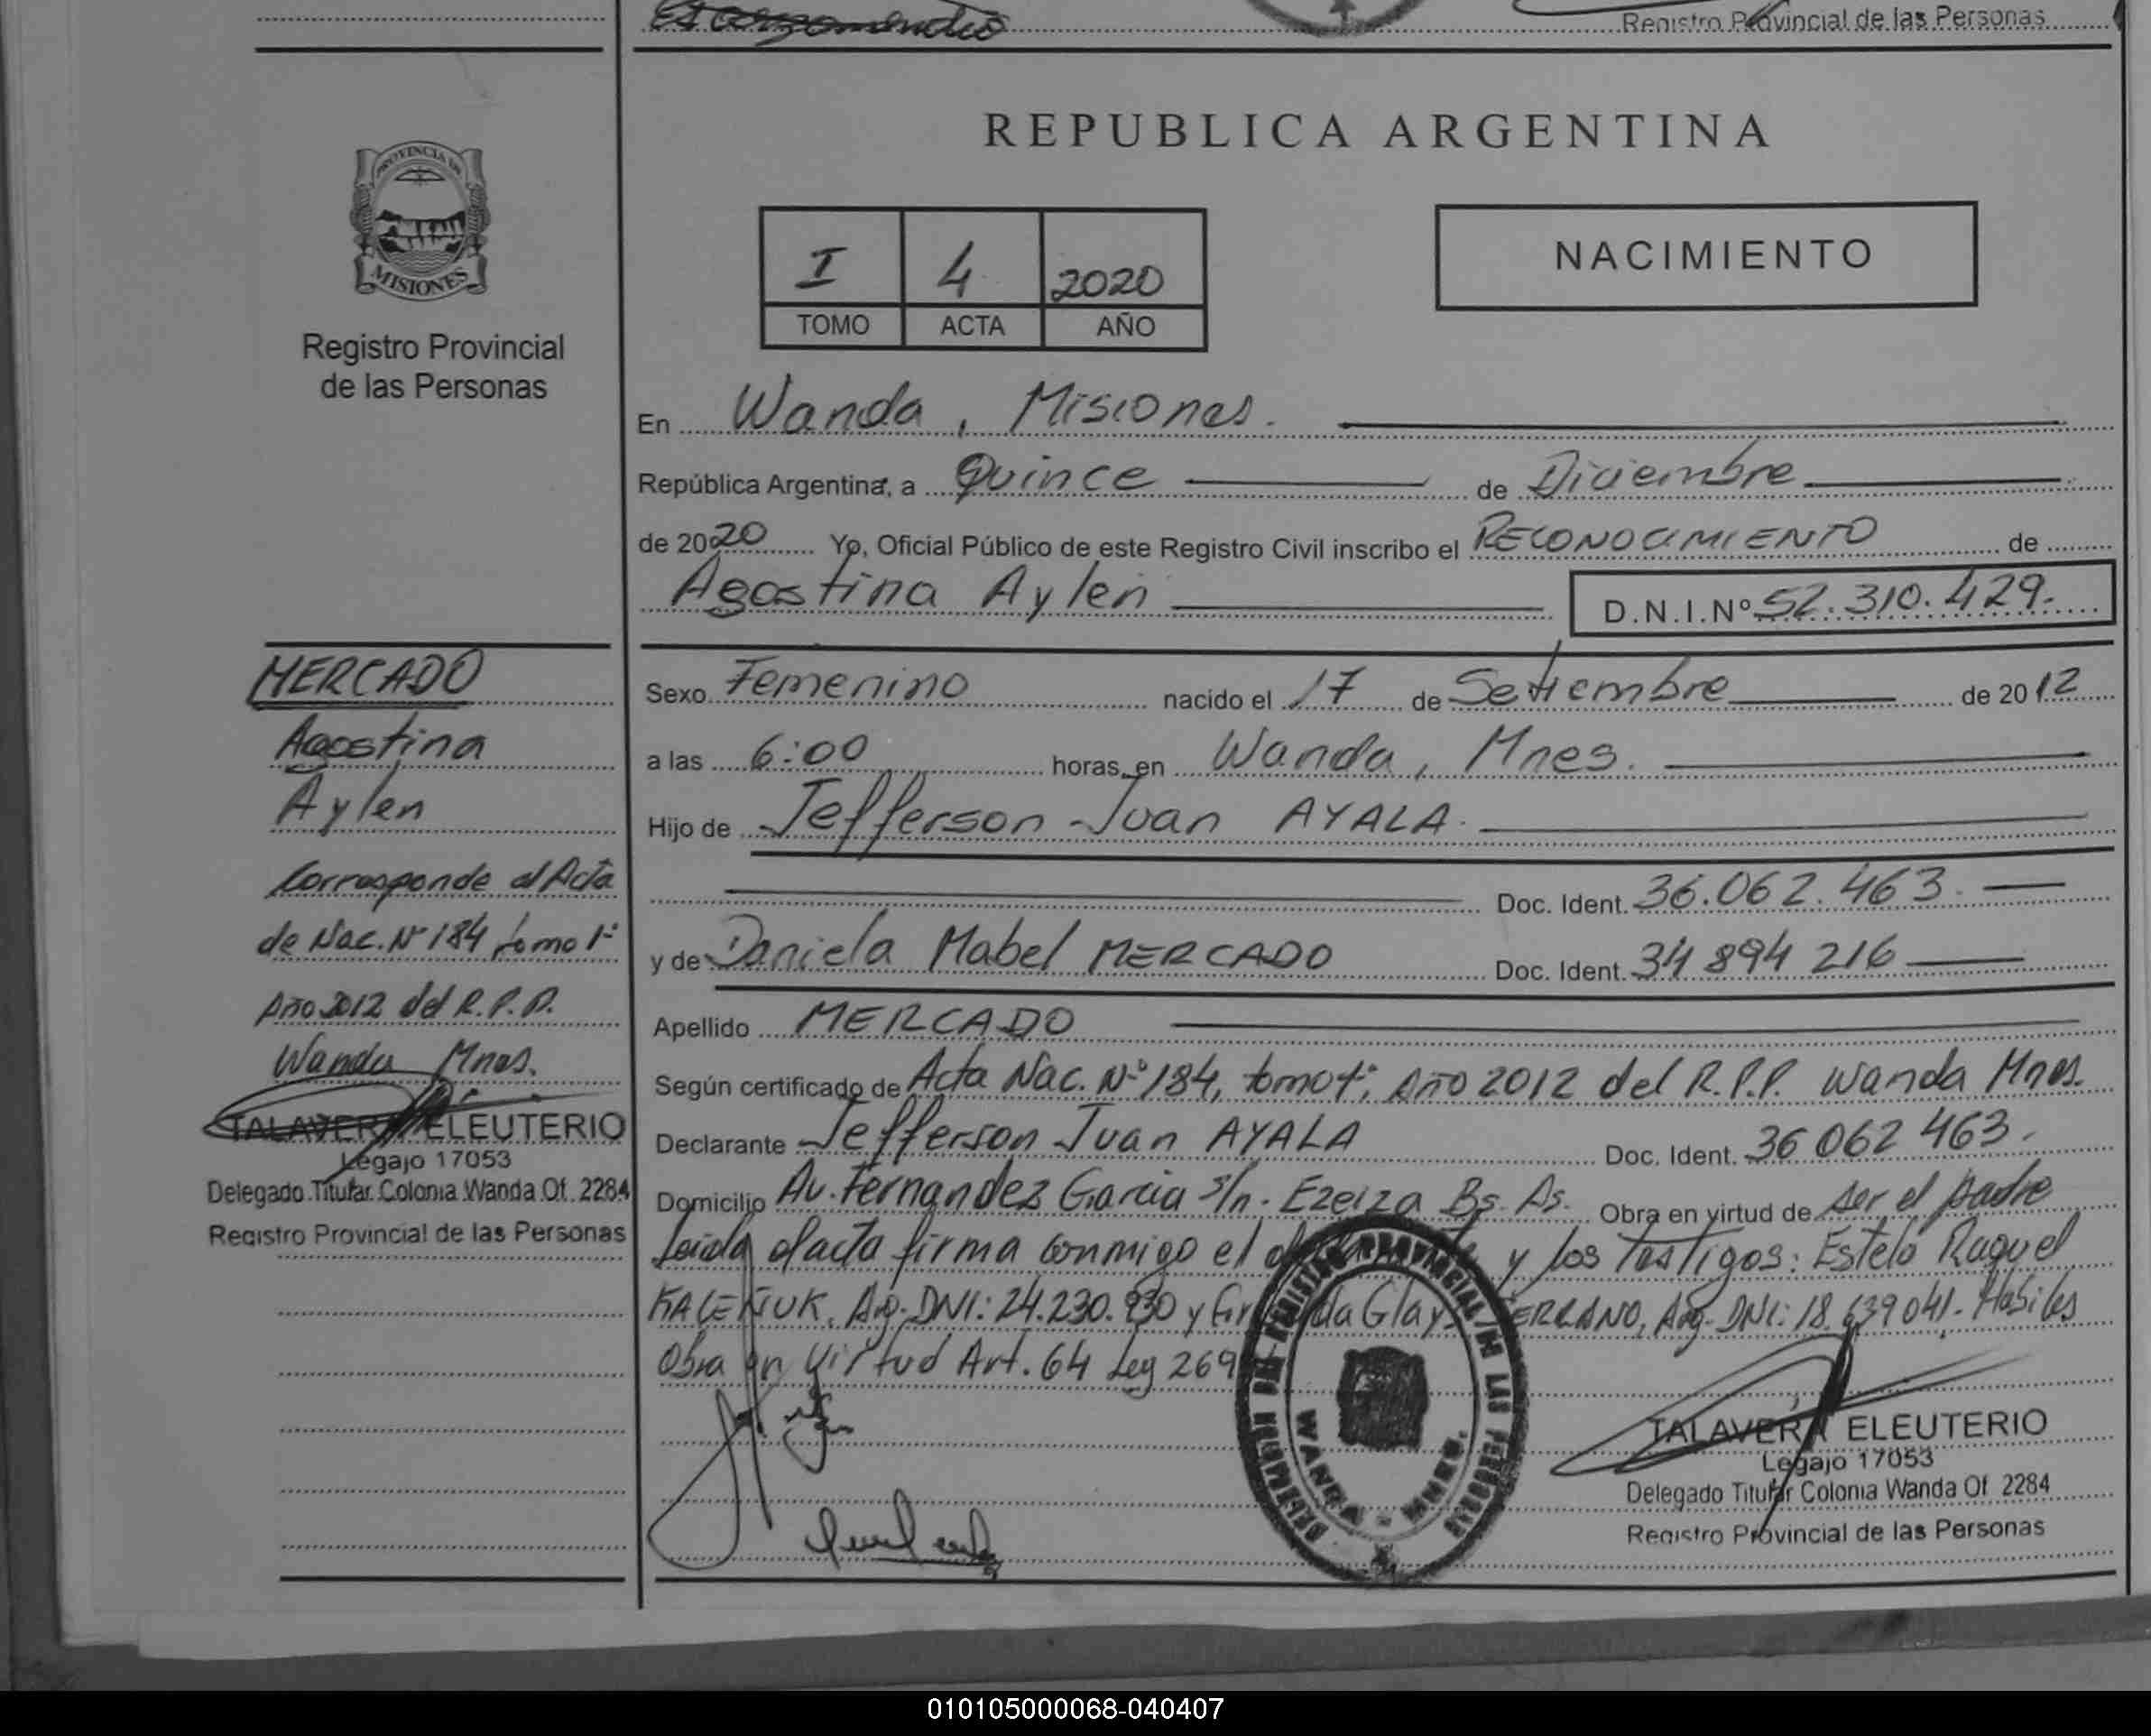 Escarzamendia
Registro Provincial de las Personas
PROVINCIA DE
MISIONES
Registro Provincial
de las Personas
MERCADO
Agostina
Aylen
Corresponde al Acta
de Nac. Nº 184 tomo 1º
Año 2012 del R.P.P.
Wanda Mnes.
TALAVERA ELEUTERIO
Legajo 17053
Delegado Titular Colonia Wanda Of. 2284
Registro Provincial de las Personas
REPUBLICA ARGENTINA
I 4 2020
TOMO ACTA AÑO
NACIMIENTO
En Wanda, Misiones.
República Argentina, a Quince de Diciembre
de 2020 Yo, Oficial Público de este Registro Civil inscribo el RECONOCIMIENTO de
Agostina Aylen D.N.I.Nº 52.310.429.
Sexo Femenino nacido el 17 de Setiembre de 2012
a las 6:00 horas, en Wanda, Mnes.
Hijo de Jefferson Juan AYALA.
Doc. Ident. 36.062.463.
y de Daniela Mabel MERCADO Doc. Ident. 34 894 216
Apellido MERCADO
Según certificado de Acta Nac. Nº 184, tomo 1º, Año 2012 del R.P.P. Wanda Mnes.
Declarante Jefferson Juan AYALA Doc. Ident. 36 062 463.
Domicilio Av. Fernandez Garcia s/n. Ezeiza Bs. As. Obra en virtud de ser el padre
Leida el acta firma conmigo el y los testigos: Estela Raquel
Arg. DNI: 24.230.930 y Arg. DNI: 18.639041. Habiles
Obra en virtud Art. 64 Ley 269
WANDA - MNES.
TALAVERA ELEUTERIO
Legajo 17053
Delegado Titular Colonia Wanda Of. 2284
Registro Provincial de las Personas
010105000068-040407